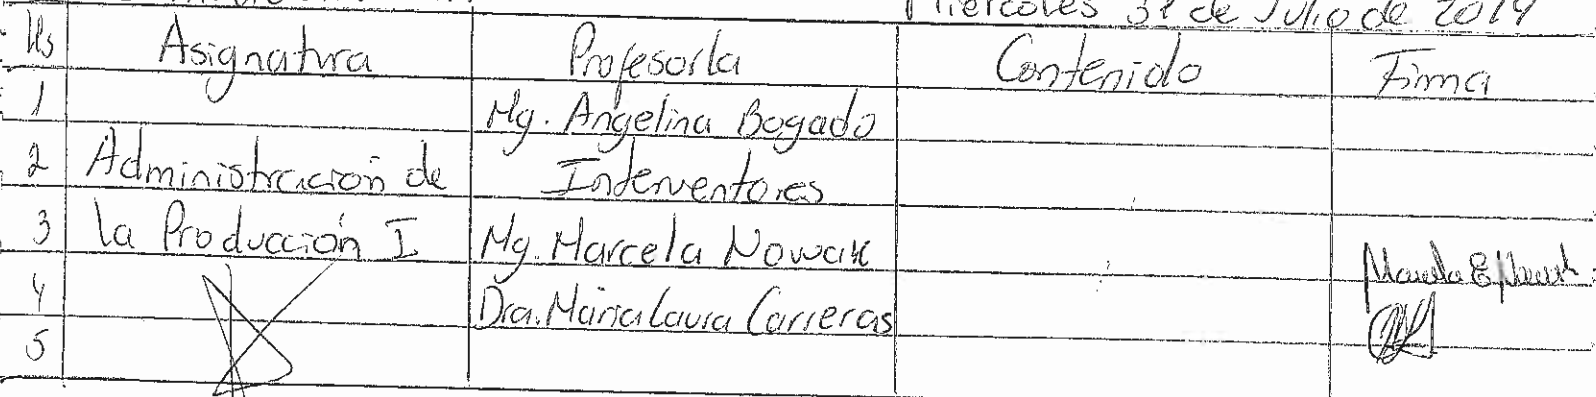 Miercoles 31 de Julio de 2019
Hs Asignatura Profesor/a Contenido Firma
1 Mg. Angelina Bogado
2 Administración de Interventores
3 la Producción I Mg. Marcela Nowak
4 Dra. Maria Laura Carreras
5